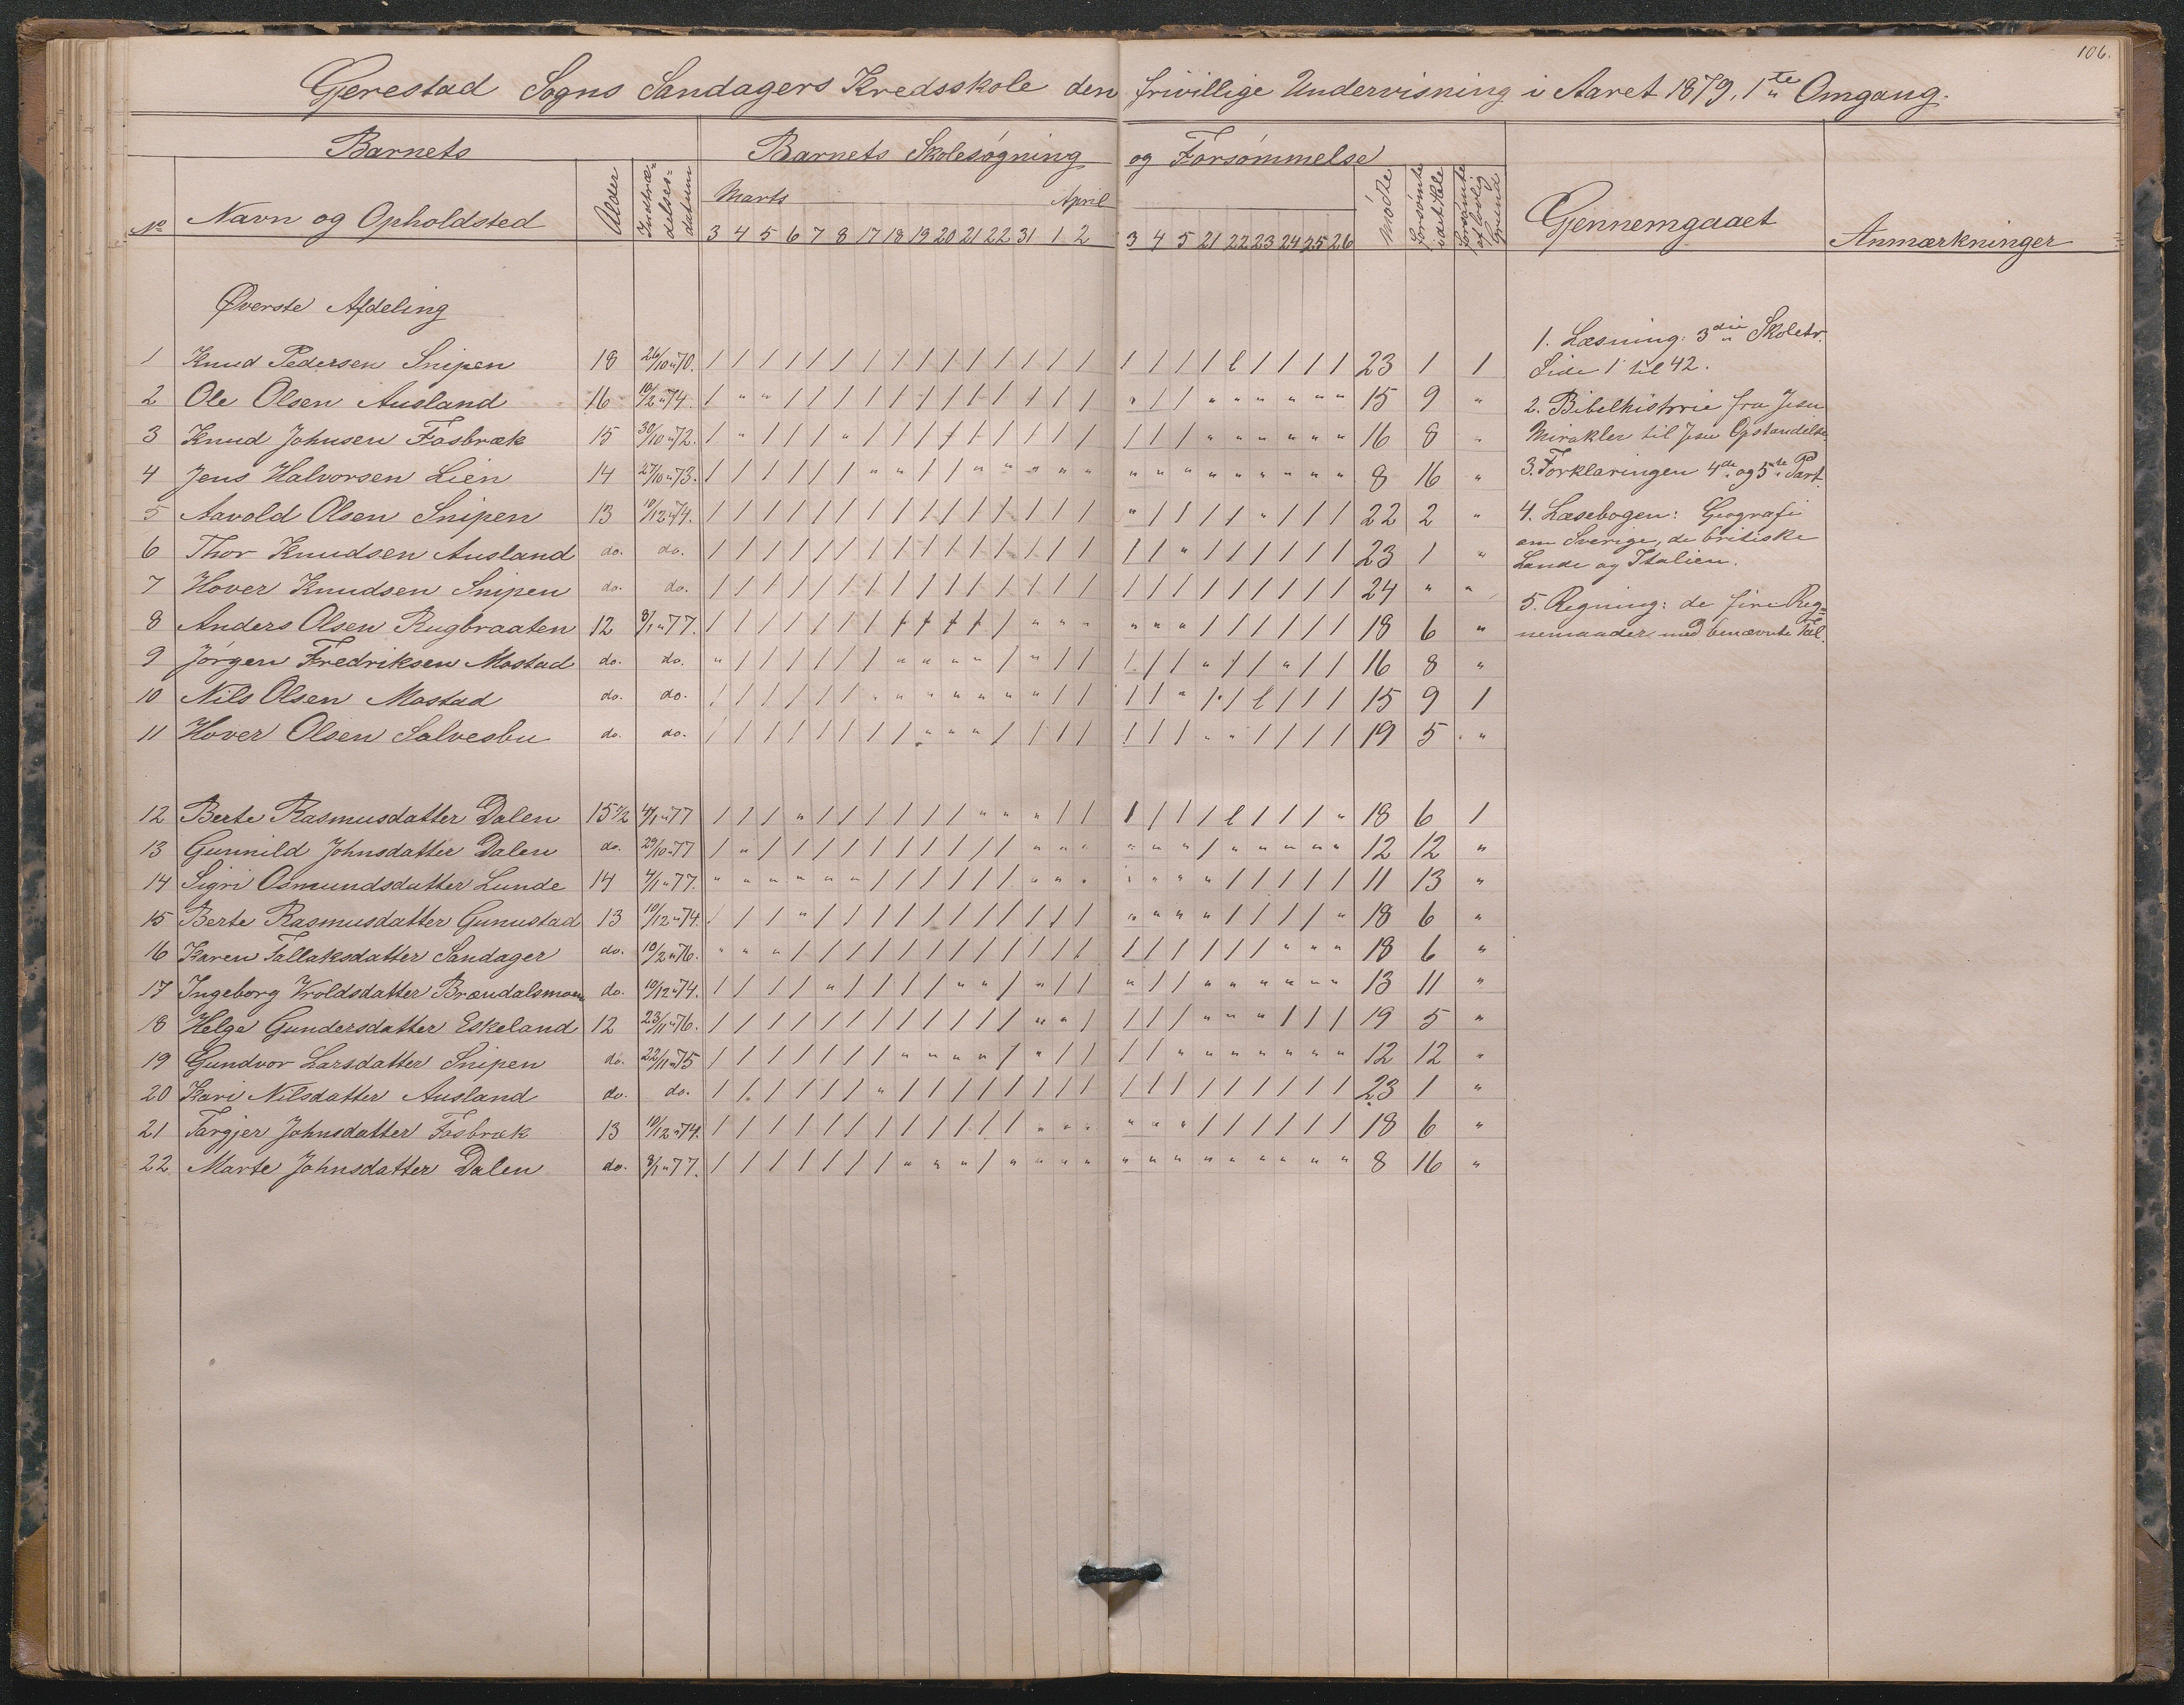 106.
Gjerestad Sogns Sandagers Kredsskole den frivillige Undervisning i Aaret 1879, 1te Omgang.
Barnets | Barnets Skolesøgning og Forsømmelse
No | Navn og Opholdsted | Alder | Indtrædelsesdatum | Marts | April | Mødte | Forsømte i det Hele | Forsømte af lovlig Grund | Gjennemgaaet | Anmærkninger
3 4 5 6 7 8 17 18 19 20 21 22 31 1 2 3 4 5 21 22 23 24 25 26
Øverste Afdeling
1 Knud Pedersen Snipen 18 26/10 " 70. / / / / / / / / / / / / / / / / / / / l / / / / 23 1 1
2 Ole Olsen Ausland 16 10/2 " 74. / " " / / / / / / / / / / / / " / / " " " " " " 15 9 "
3 Knud Johnsen Fosbræk 15 30/10 " 72. / " / / / " / / / / / / / / / / / / " " " " " " 16 8 "
4 Jens Halvorsen Lien 14 27/10 " 73. / / / / / / " " / / " " " " " " " " " " " " " " 8 16 "
5 Aavold Olsen Snipen 13 10/12 " 74. / / / / / / / / / / / / / / / " / / / / " / / / 22 2 "
6 Thor Knudsen Ausland do. do. / / / / / / / / / / / / / / / / / " / / / / / / 23 1 "
7 Hover Knudsen Snipen do. do. / / / / / / / / / / / / / / / / / / / / / / / / 24 " "
8 Anders Olsen Rugbraaten 12 8/1 " 77. / / / / / / / / / / / / " " " " " " / / / / / / 18 6 "
9 Jørgen Fredriksen Mostad do. do. " / / / / / / " " " " / " / / / / / " / / " / / 16 8 "
10 Nils Olsen Mostad do. do. / / / / / / " " " " " " " / / / / " / / l / / / 15 9 1
11 Hover Olsen Solvesbu do. do. / / / / / / / / " " " / / / / / / / " " / / / / 19 5 "
12 Berte Rasmusdatter Dalen 15 1/2 4/1 " 77 / / / " / / / / / / " " " / / / / / / l / / / " 18 6 1
13 Gunnild Johnsdatter Dalen do. 29/10 " 77 / " / / / / / / / / / / " " " " " " / " " " " " 12 12 "
14 Sigri Osmundsdatter Lunde 14 4/1 " 77. " " " " " " / / / / / / " " " " " " " / / / / / 11 13 "
15 Berte Rasmusdatter Gunustad 13 10/12 " 74. / / / " / / / / / / / / / / / " " " " / / / / " 18 6 "
16 Karen Tallaksdatter Sandager do. 10/2 " 76. " " " / / / / / / / / / / / / / / / / / / " " " 18 6 "
17 Ingeborg Vroldsdatter Brændalsmoen do. 10/12 " 74. / / / / " / / / / " " / " / / " / / " " " " " " 13 11 "
18 Helge Gundersdatter Eskeland 12 23/11 " 76. / / / / / / / / / / / / " " / / / / " " " / / / 19 5 "
19 Gundvor Larsdatter Snipen do. 22/11 " 75 / / / / / / / " " " " / " / / / / " " " " " " " 12 12 "
20 Kari Nilsdatter Ausland do. do. / / / / / / " / / / / / / / / / / / / / / / / / 23 1 "
21 Targjer Johnsdatter Fosbræk 13 10/12 " 74. / / / / / / / / / / / / " " " " " " / / / / / / 18 6 "
22 Marte Johnsdatter Dalen do. 8/1 " 77. / / / / / / / " " " / " " " " " " " " " " " " " 8 16 "
1. Læsning: 3die Skoletr.
Side 1 til 42.
2. Bibelhistorie fra Jesu
Mirakler til Jesu Opstandelse
3. Forklaringen 4de og 5te Part.
4. Læsebogen: Geografi
om Sverige, de britiske
Lande og Italien.
5. Regning: de fire Reg=
nemaader med benævnte Tal.